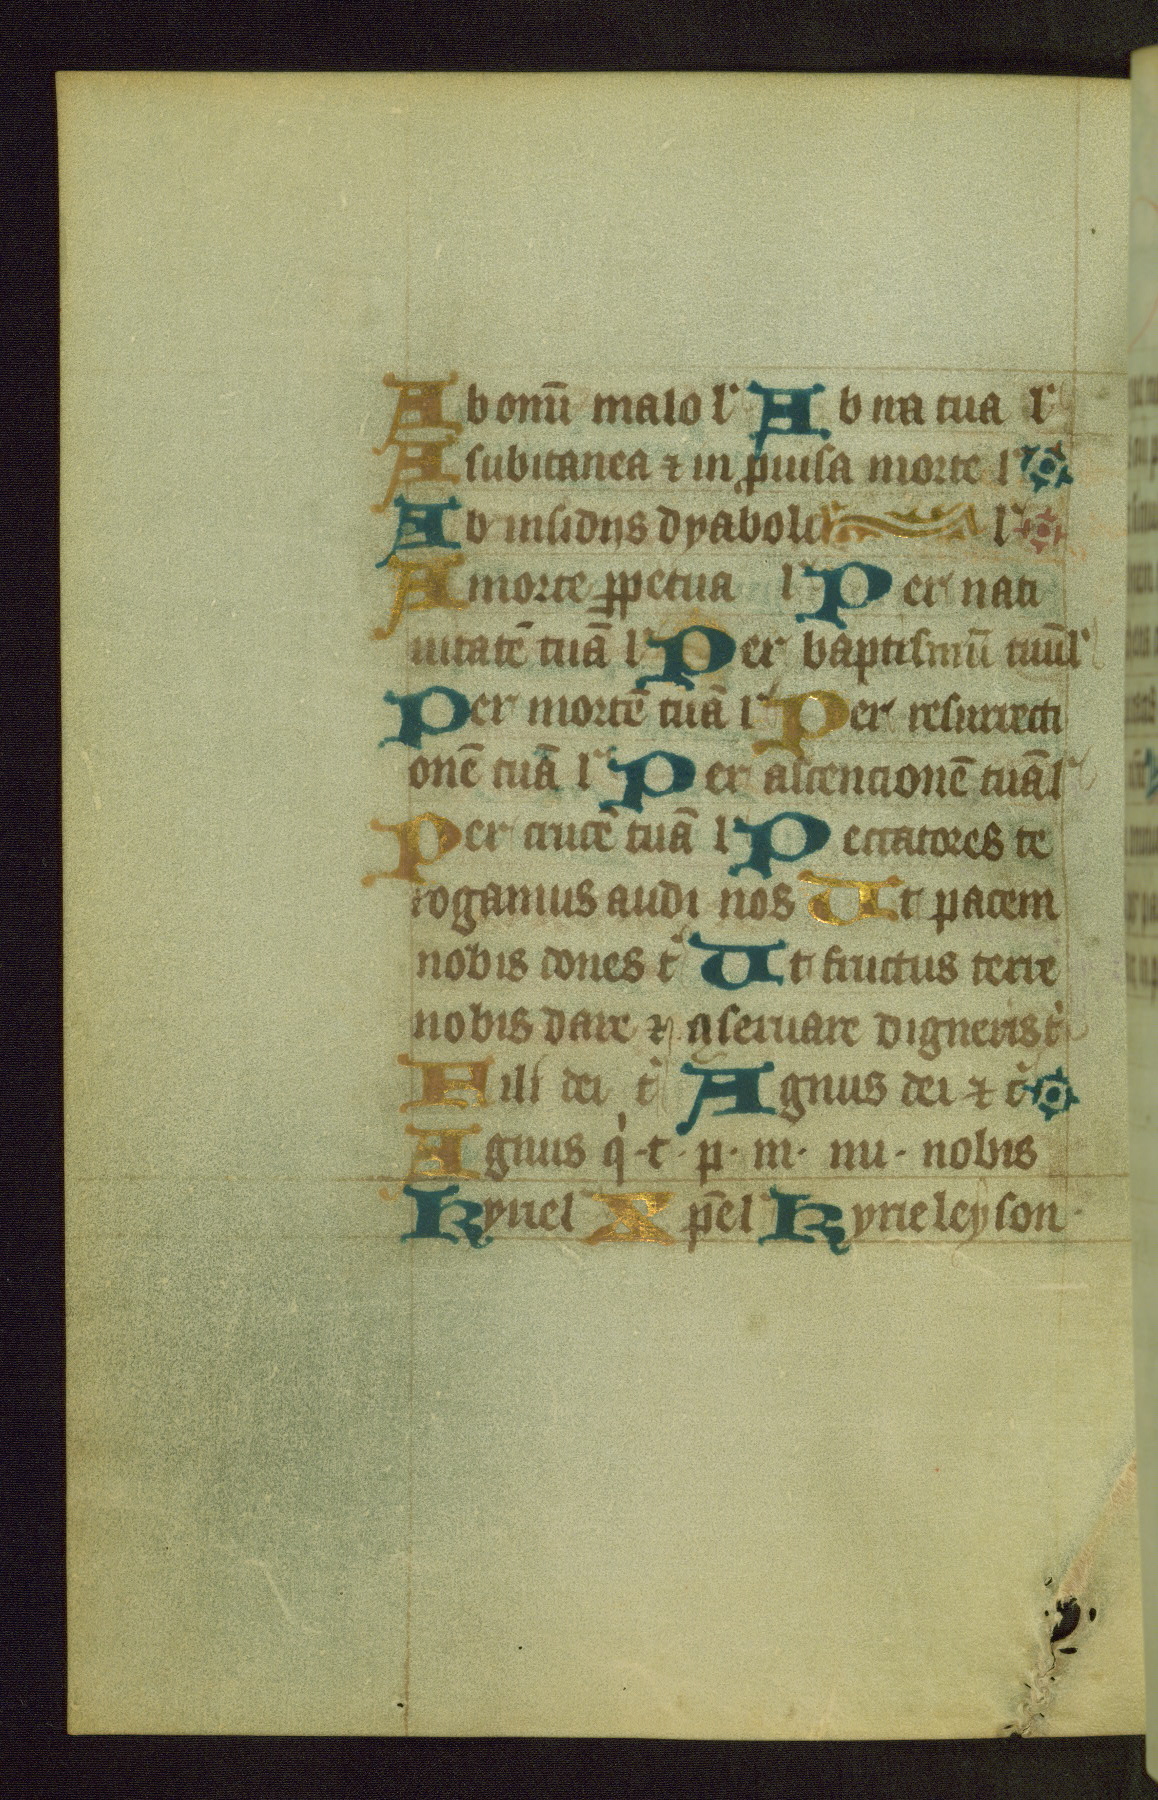 Ab om̄i malo l' Ab ira tua l'
A subitanea ⁊ inꝓuisa morte l'
Ab insidijs dyaboli l'
A morte ꝑpetua l' Per nati
uitatē tuā l' Per baptismū tuū l'
Per mortē tuā l' Per resurrecti
onē tuā l' Per ascencionē tuā l'
Per crucē tuā l' Peccatores te
rogamus audi nos Ut pacem
nobis dones t' Ut fructus terre
nobis dare ⁊ ꝯseruare digneris t'
Fili dei t' Agnus dei ⁊ c̄
Agnus q' · t · p · m · nu · nobis
Kyriel Xp̄el Kyrieleyson